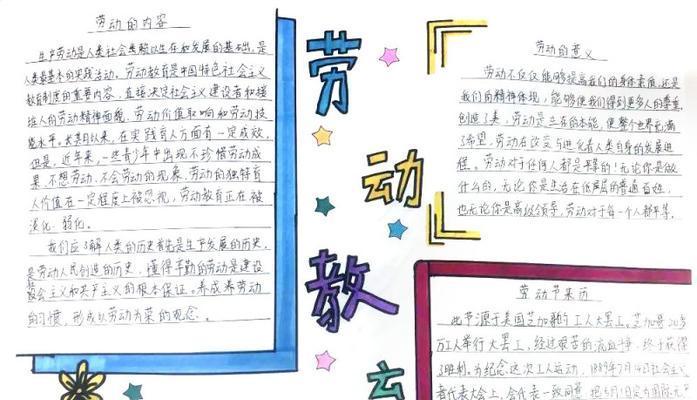 劳动的内容
生产劳动是人类社会赖以生存和发展的基础,是
人类最基本的实践活动。劳动教育是中国特色社会主义
教育制度的重要内容,直接决定社会主义建设者和接
班人的劳动精神面貌、劳动价值取向和劳动技
能水平。长期以来,在实践育人方面有一定成效。
但是,近年来,一些青少年中出现不珍惜劳动成
果、不想劳动、不会劳动的现象,劳动的独特育
人价值在一定程度上被忽视,劳动教育正在被
淡化、弱化。
我们应了解人类的历史首先是生产发展的历史,
是劳动人民创造的历史,懂得辛勤的劳动是建设
社会主义和共产主义的根本保证。养成养劳动
的习惯,形成以劳动为荣的观念。
劳
动
教
劳动的意义
劳动不仅仅能够提高我们的身体素质,还是
我们的精神体现,能够使我们得到更多人的尊重
创造了美,劳动是生存的本能,使整个世界充满
了希望,劳动在改变与进化着人类自身的发展进
程。劳动对于任何人都是平等的!无论你是做
什么的,无论你是生活在低层的普通百姓,
也无论你是高级领导,劳动对于每一个人都平等。
劳动节来历
此节源于美国芝加哥的工人大罢工。芝加哥20多
万工人举行大罢工,经过艰苦的流血斗争,终于获得
了胜利。为纪念这次工人运动,1889年7月14日社会主义
者代表大会上,会代表一致同意,把5月1日定为国际